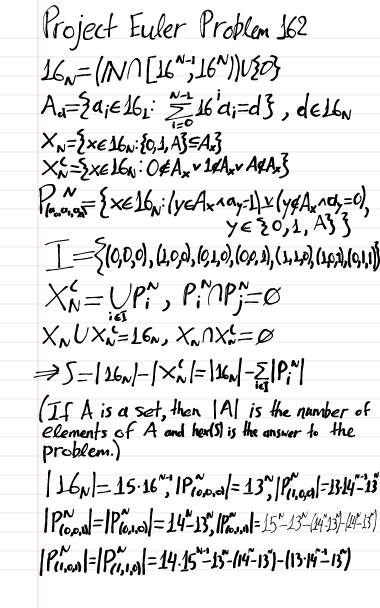 Project Euler Problem 162
16_N=(ℕ∩[16^{N-1};16^N))∪{0}
A_d={a_i∈16_1: ∑_{i=0}^{N-1} 16^i a_i=d}, d∈16_N
X_N={x∈16_N:{0,1,A}⊆A_x}
X_N^C={x∈16_N: 0∉A_x∨1∉A_x∨A∉A_x}
P_{(a_0,a_1,a_A)}^N={x∈16_N:(y∈A_x∧a_y=1)∨(y∉A_x∧a_y=0),
y∈{0,1,A}}
I={(0,0,0),(1,0,0),(0,1,0),(0,0,1),(1,1,0),(1,0,1),(0,1,1)}
X_N^C=⋃_{i∈I}P_i^N, P_i^N∩P_j^N=∅
X_N∪X_N^C=16_N, X_N∩X_N^C=∅
⇒S=|16_N|-|X_N^C|=|16_N|-∑_{i∈I}|P_i^N|
(If A is a set, then |A| is the number of
elements of A and hex(S) is the answer to the
problem.)
|16_N|=15·16^{N-1}, |P_{(0,0,0)}^N|=13^N, |P_{(1,0,0)}^N|=13·14^{N-1}-13^N
|P_{(0,0,1)}^N|=|P_{(0,1,0)}^N|=14^N-13^N, |P_{(0,1,1)}^N|=15^N-13^N-(14^N-13^N)-(14^N-13^N)
|P_{(1,0,1)}^N|=|P_{(1,1,0)}^N|=14·15^{N-1}-13^N-(14^N-13^N)-(13·14^{N-1}-13^N)